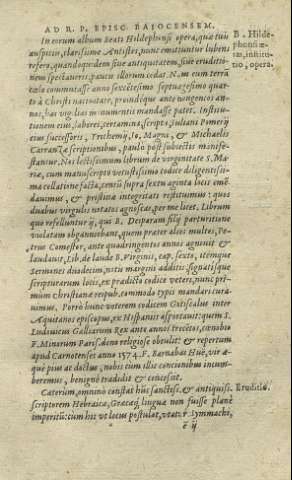 AD R. P. EPISC. BAIOCENSEM.
In eorum album Beati Hildephonsi opera, quæ tuis
auspicijs, clarissime Antistes, nunc emittuntur lubens
refero, quandoquidem siue antiquitatem, siue eruditio-
nem spectaueris, paucis illorum cedat. Nam eum terræ
cœlo commutasse anno sexcētesimo septuagesimo quar-
to à Christi natiuitate, proindéque ante nongentos an-
nos, has vigilias in manendi mandasse patet. Institu-
tionem eius, labores, certamina, scripta, Iuliani Pomerij
eius successoris, Trithemij, Io. Magni, & Michaelis
Carranzæ scriptionibus, paulò pòst subiectis manife-
stantur. Nos lectissimum librum de virginitate S. Ma-
riæ, cum manuscripto vetustissimo codice diligentissi-
ma collatione facta, centū supra sextū aginta locis emē
dauimus, & pristinæ integritati restituimus: quos
duabus virgulis notatis agnoscas, per me licet. Librum
que refelluntur ij, qui B. Deiparam filij parturitione
violatam obganniebant, quem præter alios multos, Pe-
trus Comestor, ante quadringentos annos agnouit &
laudauit, Lib. de laude B. Virginis, cap. sexto, itemque
Sermones duodecim, vtiis margini additis signatisque
scripturarum locis, ex prædicto codice veteri, nunc pri-
mùm Christianæ reipub. commodo typis mandari cura-
uimus. Porrò hunc veterem codicem Gotiscalus inter
Aequitanos episcopus, ex Hispanis asportauit: quem S.
Ludouicus Galliarum Rex ante annos trecētos, cœnobio
F. Minorum Paris. dono religiosè obtulit: & repertum
apud Carnotenses anno 1574. F. Barnabas Huë, vir æ-
què pius at doctus, nobis tum illic concionibus incum-
beremus, benignè tradidit & concessit.
Cæterùm, omnino constat hūc sanctiss. & antiquiss.
scriptorem Hebraicæ, Græcæq; linguæ non fuisse planè
imperitū: cum his vt locus postulat, vtatur. Symmachi,
ē ij
B. Hilde-
phonsi æ-
tas, institu-
tio, opera.
Eruditio.